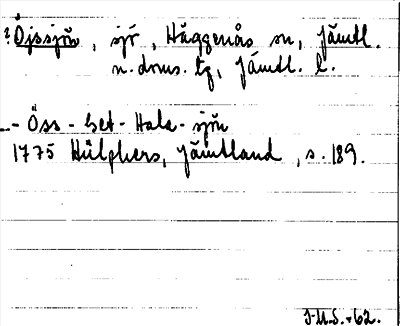 ? Öjssjön, sjö, Häggenås sn, Jämtl.
n. doms. tg, Jämtl. l.
- Öss-bet-Hala-sjön
1775 Hülphers, Jämtland, s. 189.
J.M.S. -62.